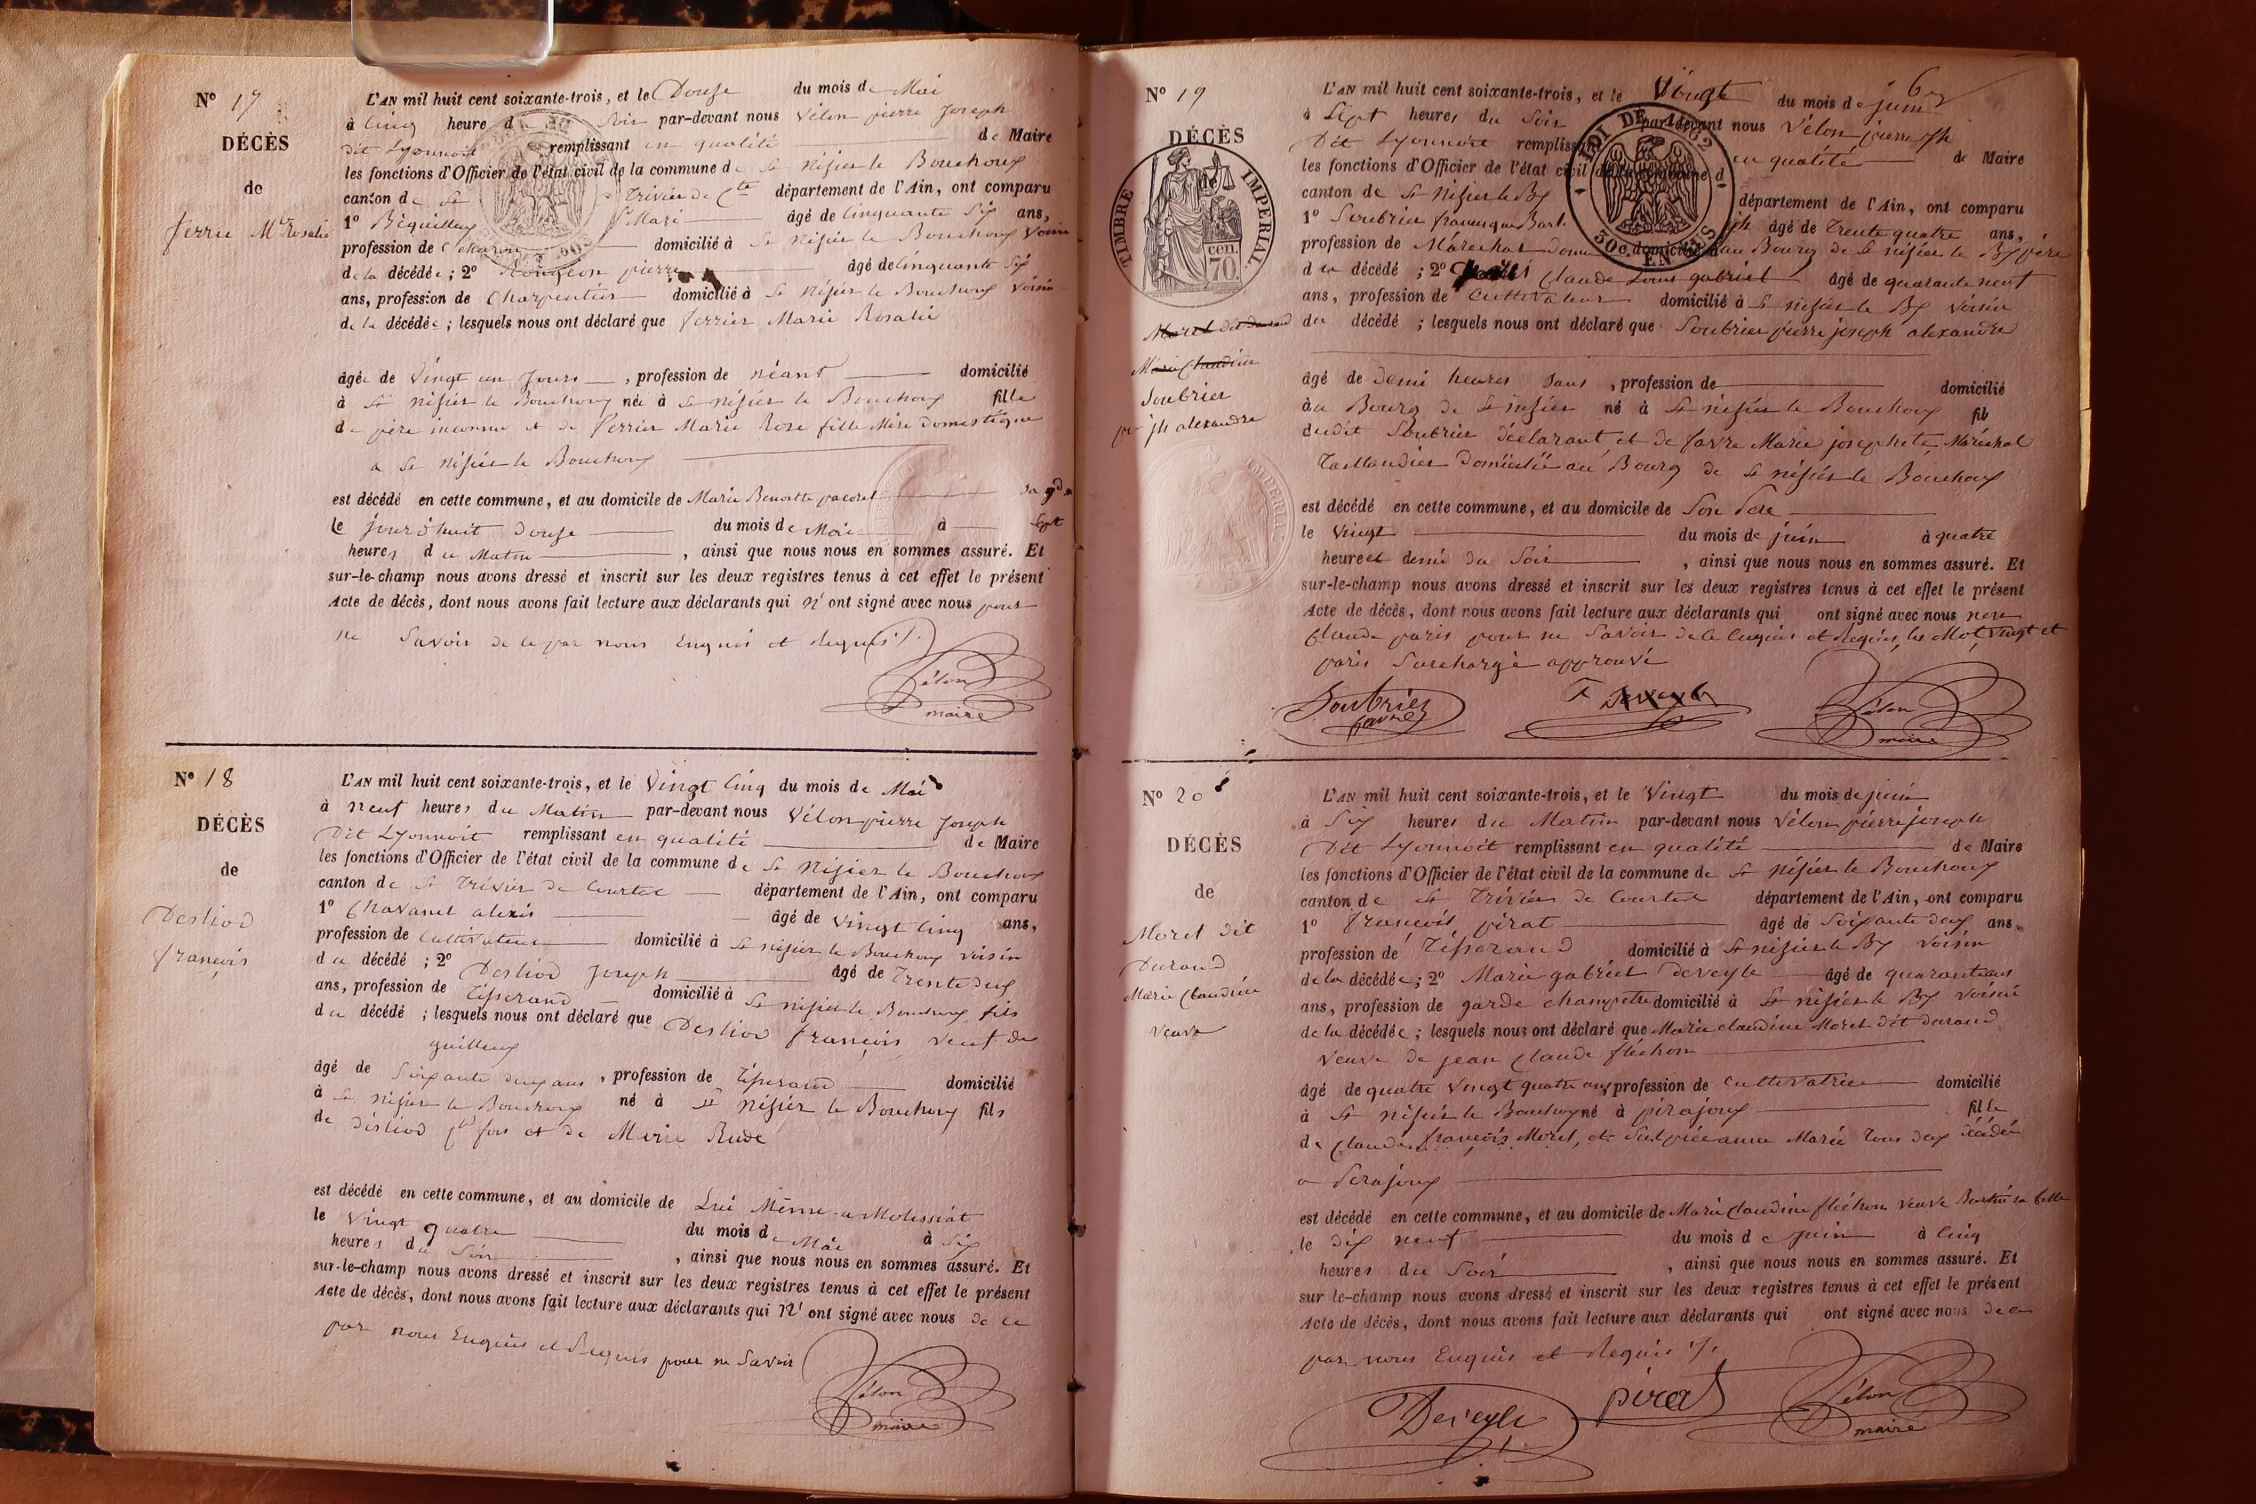 N° 17
DÉCÈS
de
Ferrier Mie Rosalie
L'AN mil huit cent soixante-trois, et le Douze du mois de Mai
à cinq heure du Soir par-devant nous Vélon pierre Joseph
dit Lyonnoit remplissant en qualité de Maire
les fonctions d'Officier de l'état civil de la commune de St Nisier le Bouchoux
canton de St Trivier de Cte département de l'Ain, ont comparu
1° Béguilleux Mari âgé de Cinquante Six ans,
profession de domicilié à St Nisier le Bouchoux voisin
de la décédée ; 2° pierre âgé de cinquante Six
ans, profession de Charpentier domicilié à St Nisier le Bouchoux voisin
de la décédée ; lesquels nous ont déclaré que Ferrier Marie Rosalie
âgée de Vingt un Jours , profession de néant domicilié
à St Nisier le Bouchoux née à St Nisier le Bouchoux fille
de père inconnu et de Ferrier Marie Rose fille Mère domestique
a St Nisier le Bouchoux
est décédé en cette commune, et au domicile de Marie Benoitte pacoret sa gd m
le jourd'huit Douze du mois de Mai à Sept
heures du Matin , ainsi que nous nous en sommes assuré. Et
sur-le-champ nous avons dressé et inscrit sur les deux registres tenus à cet effet le présent
Acte de décès, dont nous avons fait lecture aux déclarants qui n' ont signé avec nous pour
ne Savoir de ce par nous Enquis et Requis
Vélon
maire
N° 18
DÉCÈS
de
Desliod
François
L'AN mil huit cent soixante-trois, et le Vingt Cinq du mois de Mai
à neuf heures du Matin par-devant nous Vélon pierre Joseph
Dit Lyonnoit remplissant en qualité de Maire
les fonctions d'Officier de l'état civil de la commune de St Nisier le Bouchoux
canton de St Trivier de Courtes département de l'Ain, ont comparu
1° Chavanel alexis âgé de Vingt Cinq ans,
profession de Cultivateur domicilié à St Nisier le Bouchoux voisin
du décédé ; 2° Desliod Joseph âgé de Trente deux
ans, profession de Tisserand domicilié à St Nisier le Bouchoux fils
du décédé ; lesquels nous ont déclaré que Desliod François veuf de
guilleux
âgé de Soixante deux ans , profession de Tisserand domicilié
à St Nisier le Bouchoux né à St Nisier le Bouchoux fils
de Desliod fois et de Marie Rude
est décédé en cette commune, et au domicile de Lui Même a Molissiat
le Vingt quatre du mois de Mai à Six
heures du Soir , ainsi que nous nous en sommes assuré. Et
sur-le-champ nous avons dressé et inscrit sur les deux registres tenus à cet effet le présent
Acte de décès, dont nous avons fait lecture aux déclarants qui N' ont signé avec nous de ce
par nous Enquis et Requis pour ne Savoir
Vélon
maire
N° 19
DÉCÈS
de
TIMBRE IMPÉRIAL
70 cen.
Moret dit durand
Marie Claudine
Soubrier
pre jh alexandre
L'AN mil huit cent soixante-trois, et le Vingt du mois de juin
à Sept heures du Soir par-devant nous Vélon pierre jph
Dit Lyonnoit remplissant en qualité de Maire
les fonctions d'Officier de l'état civil de la commune d
LOI DE 1862
30c. EN SUS
canton de St Nisier le Bx département de l'Ain, ont comparu
1° Soubrier françois Bart. jph âgé de Trente quatre ans,
profession de Marechal domicilié au Bourg de St Nisier le Bx père
du décédé ; 2° Claude Louis gabriel âgé de quarante neuf
ans, profession de Cultivateur domicilié à St Nisier le Bx voisin
du décédé ; lesquels nous ont déclaré que Soubrier pierre joseph alexandre
âgé de Demi heures Sans , profession de domicilié
au Bourg de St nisier né à St nisier le Bouchoux fils
dudit Soubrier déclarant et de favre Marie josephete Maréchal
Taillandier Domicilié au Bourg de St nisier le Bouchoux
est décédé en cette commune, et au domicile de Son Père
le Vingt du mois de juin à quatre
heures et demi du Soir , ainsi que nous nous en sommes assuré. Et
sur-le-champ nous avons dressé et inscrit sur les deux registres tenus à cet effet le présent
Acte de décès, dont nous avons fait lecture aux déclarants qui ont signé avec nous non
Claude paris pour ne Savoir de ce Enquis et Requis, les Mots Vingt et
paris Surchargé approuvé
Soubrier
favre
Vélon
maire
N° 20
DÉCÈS
de
Moret Dit
Durand
Marie Claudine
veuve
L'AN mil huit cent soixante-trois, et le Vingt du mois de juin
à Six heures du Matin par-devant nous Vélon pierre joseph
Dit Lyonnoit remplissant en qualité de Maire
les fonctions d'Officier de l'état civil de la commune de St Nisier le Bouchoux
canton de St Trivier de Courtes département de l'Ain, ont comparu
1° François pirat âgé de Soixante deux ans,
profession de Tisserand domicilié à St nisier le Bx voisin
de la décédée ; 2° Marie gabriel Deveyle âgé de quarante ans
ans, profession de garde champetre domicilié à St nisier le Bx voisin
de la décédée ; lesquels nous ont déclaré que Marie claudine Moret dit durand
veuve de jean Claude fléchon
âgé de quatre Vingt quatre ans profession de Cultivatrice domicilié
à St Nisier le Bouchoux né à pirajoux fille
de Claude françois Moret, et Sulpice anne Marie Tous deux décédés
a Pirajoux
est décédé en cette commune, et au domicile de Marie Claudine fléchon veuve sa belle
le dix neuf du mois de juin à Cinq
heures du Soir , ainsi que nous nous en sommes assuré. Et
sur-le-champ nous avons dressé et inscrit sur les deux registres tenus à cet effet le présent
Acte de décès, dont nous avons fait lecture aux déclarants qui ont signé avec nous de ce
par nous Enquis et Requis
Deveyle
pirat
Vélon
maire